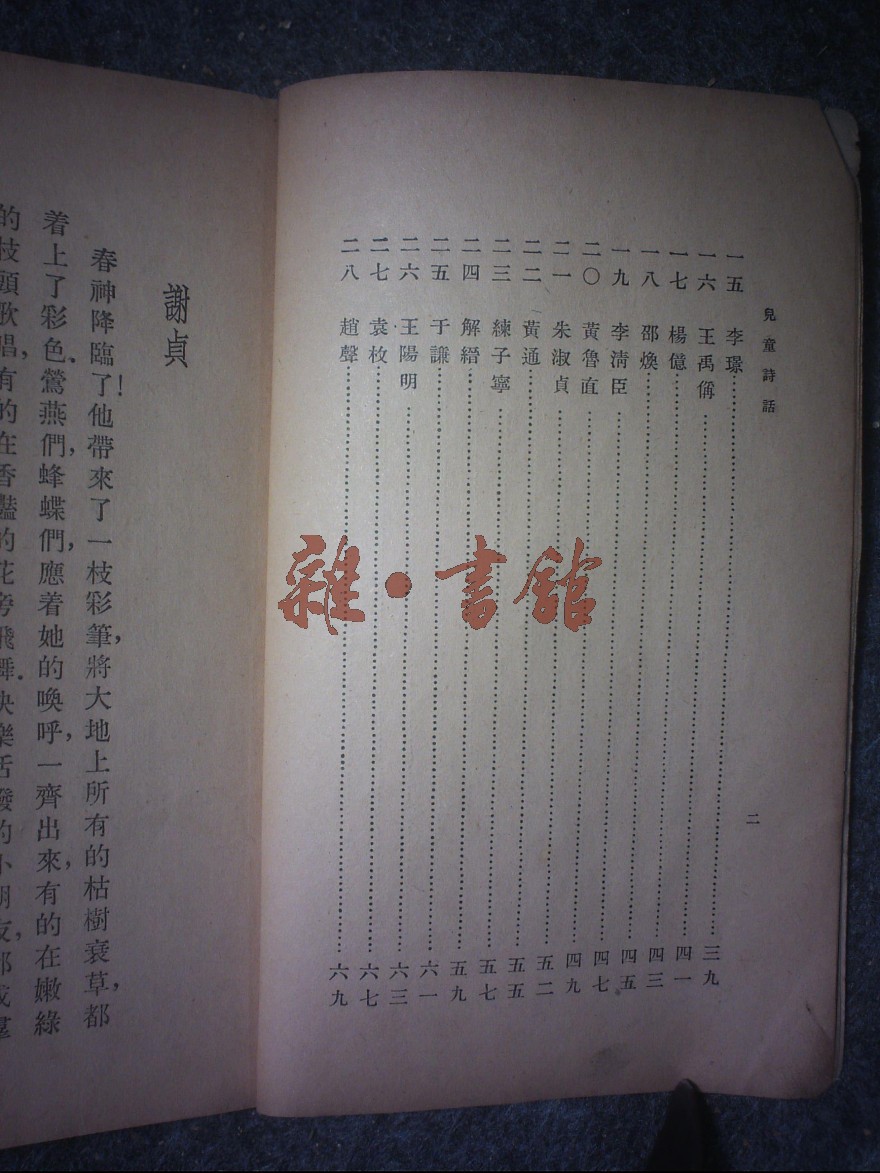 兒童詩話
一五 李璟……三九
一六 王禹偁……四一
一七 楊億……四三
一八 邵煥……四五
一九 李淸臣……四七
二〇 黃魯直……四九
二一 朱淑貞……五二
二二 黃通……五五
二三 練子寧……五七
二四 解縉……五九
二五 于謙……六一
二六 王陽明……六三
二七 袁枚……六七
二八 趙聲……六九
二
謝貞
春神降臨了！他帶來了一枝彩筆，將大地上所有的枯樹衰草，都
着上了彩色．鶯燕們，蜂蝶們，應着她的喚呼，一齊出來，有的在嫩綠
的枝頭歌唱，有的在香豔的花旁飛舞．快樂活潑的小朋友，都成羣
雜·書館